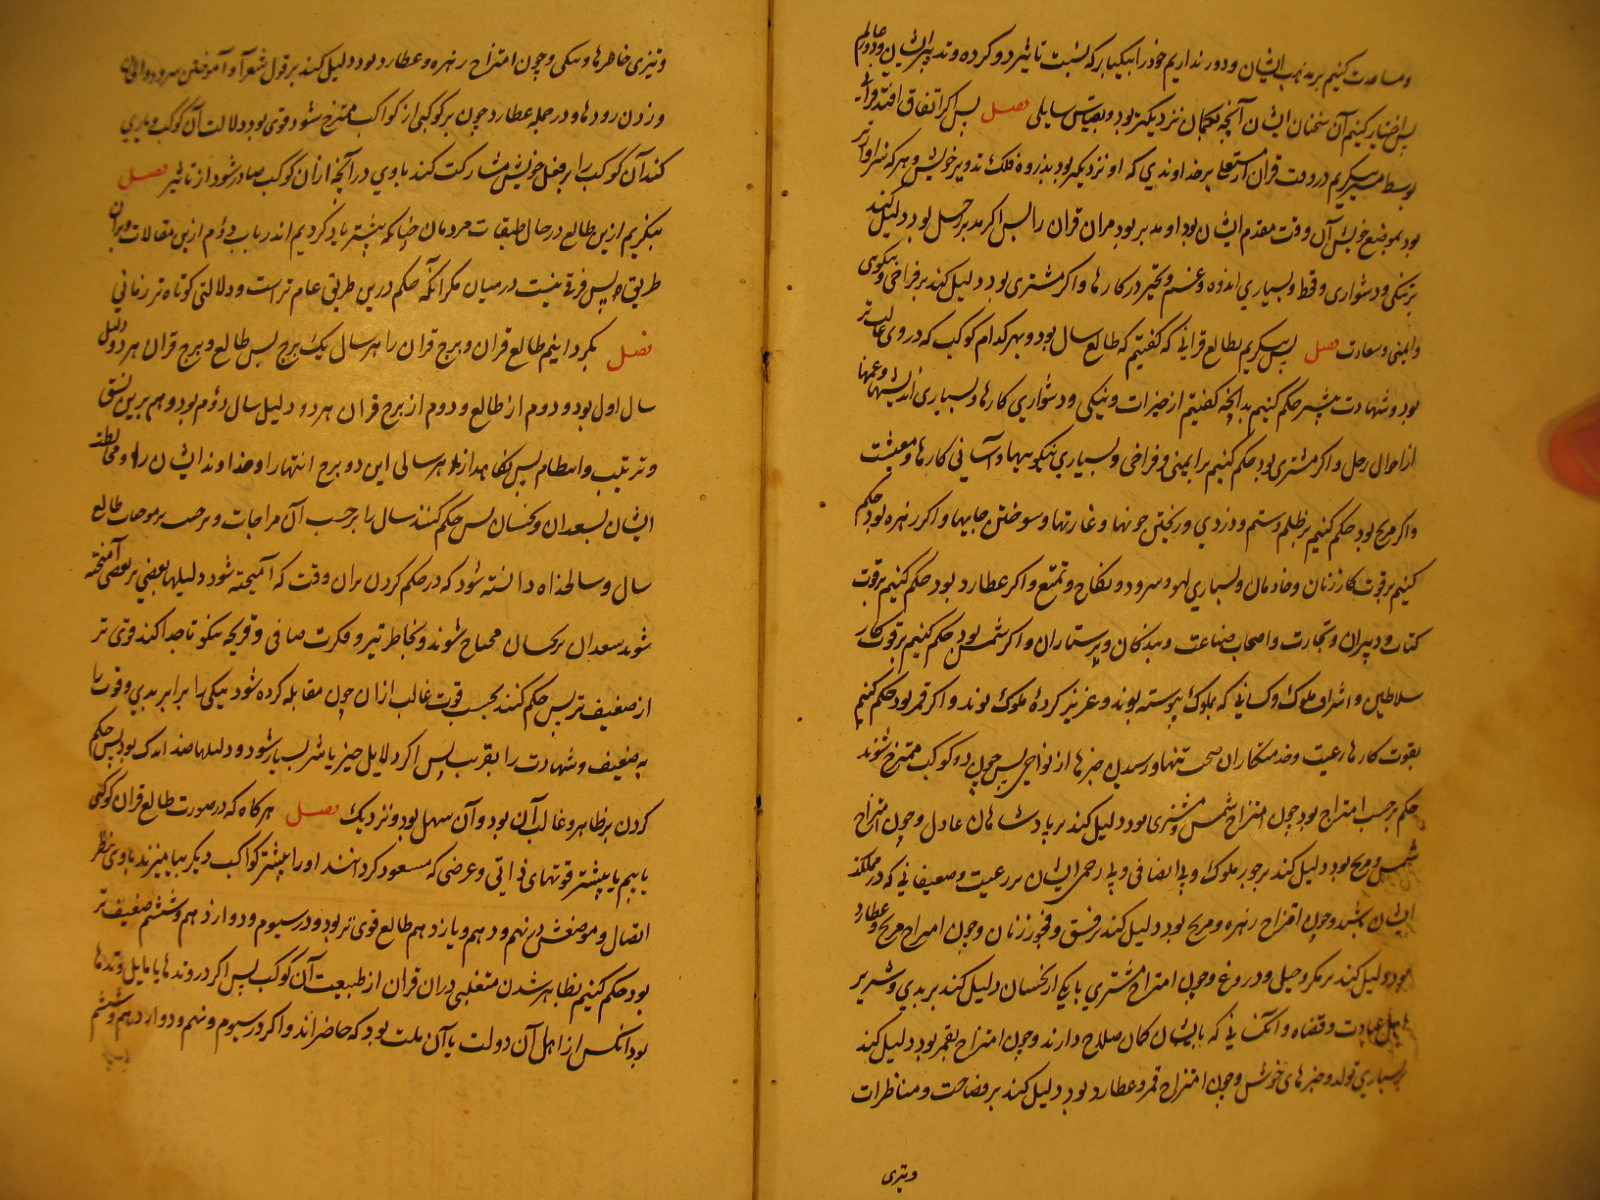 ومساعدت کنیم بر مذهب ایشان و دور نداریم خود را بیکبار که نسبت تاثیر دو کرده و تدبیر ایشان بدو عالم
پس اختیار کنیم آن سخنان ایشان آنچه بحکمان نزدیکتر بود و بقیاس سایلی فصل پس اگر اتفاق افتد قرانی
بوسط مسیر بنگریم در وقت قران از مستعلی بر خداوندی که او نزدیکتر بود بذروه فلک تدویر خویش و هرکه سزاوارتر
بود بموضع خویش آن وقت مقدم ایشان بود او مدبر بود مران قران را پس اگر مدبر زحل بود دلیل کند
بر تنگی و دشواری و قحط و بسیاری اندوه و غم و تحیر در کارها و اگر مشتری بود دلیل کند بر فراخی و نیکوی
و ایمنی و سعادت فصل پس بنگریم بطالع قرانی که گفتیم که طالع سال بود و بهر کدام کوکب که در وی غالب تر
بود و شهادت بیشتر حکم کنیم بدانچه گفتیم از خیرات و نیکی و دشواری کارها و بسیاری اندیشها و غمها
از احوال زحل و اگر مشتری بود حکم کنیم بر ایمنی و فراخی و بسیاری نیکوییها و آسانی کارها و معیشت
و اگر مریخ بود حکم کنیم بر ظلم و ستم و دزدی و ریختن خونها و غارتها و سوختن جایها و اگر زهره بود حکم
کنیم بر قوت کار زنان و خادمان و بسیاری لهو و سرود و نکاح و تمتع و اگر عطارد بود حکم کنیم بر قوت
کتاب و دبیران و تجارت و اصحاب صناعت و بندگان و پرستاران و اگر شمس بود حکم کنیم بر قوت کار
سلاطین و اشراف ملوک و کسانی که بملوک پیوسته بوند و عزیز کردهٔ ملوک بوند و اگر قمر بود حکم کنیم
بقوت کارها رعیت و خدمتکاران صحت تنها و رسیدن خبرها از نواحی پس چون دو کوکب ممتزج شوند
حکم بر حسب امتزاج بود چون امتزاج شمس و مشتری بود دلیل کند بر پادشاهان عادل و چون امتزاج
شمس و مریخ بود دلیل کند بر جور ملوک و بی انصافی و بی رحمی ایشان بر رعیت و ضعیفانی که در مملکت
ایشان باشند و چون امتزاج زهره و مریخ بود دلیل کند بر فسق و فجور زنان و چون امتزاج مریخ و عطارد
بود دلیل کند بر مکر و حیلی و دروغ و چون امتزاج مشتری با یکی از نحسان دلیل کند بر بدی و شر بر
اهل عبادت و قضاه و آنکسانی که بایشان گمان صلاح دارند و چون امتزاج بقمر بود دلیل کند
بر بسیاری تولد و خبرهای خوش و چون امتزاج قمر و عطارد بود دلیل کند بر فصاحت و مناظرات
و تیزی
و تیزی خاطرها و نیکی و چون امتزاج زهره و عطارد بود دلیل کند بر قول شعر و آموختن سرود و الحان
و زدن رودها و در جمله عطارد چون بر کوکبی از کواکب ممتزج شود قوی بود دلالت آن کوکب و یاری
کند آن کوکب را بر فعل خویش مشارکت کند با وی در آنچه از آن کوکب صادر شود از تاثیر فصل
بنگریم ازین طالع در حال طبقات مردمان چنانکه پیشتر یاد کردیم اندر باب دوم ازین مقالات و بران
طریق پس فرق نیست در میان مگر آنکه حکم درین طریق عام تر است و دلالتی کوتاه تر زمانی
فصل بگردانیم طالع قران و برج قران را هر سال یک برج پس طالع و برج قران هر دو دلیل
سال اول بود و دوم از طالع و دوم از برج قران هر دو دلیل سال دوم بود و هم برین نسق
و ترتیب و انتظام پس نگاه دارند هر سالی این دو برج انتها را و خداوند ایشان را و مخالطت
ایشان بسعدان و نحسان پس حکم کنند سال را بر حسب آن مزاجات و بر حسب موجبات طالع
سال و سالخداه دانسته شود که در حکم کردن بران وقت که آمیخته شود دلیلها بعضی بر بعضی آمیخته
شوند سعدان بر نحسان محتاج شوند بخاطر تیز و فکرت صافی و قریحه نیکو تا جدا کند قوی تر
از ضعیف تر پس حکم کنند بحسب قوت غالب از آن چون مقابله کرده شود نیکی را برابر بدی و قوت را
به ضعیف و شهادت را بقریب پس اگر دلایل خیر یا شر بسیار شود و دلیلها ضد اندک بود پس حکم
کردن بر ظاهر و غالب آن بود و آن سهل بود و نزدیک فصل هرگاه که در صورت طالع قران کوکبی
یابیم با بیشتر قوتهای ذاتی و عرضی که مسعود کرده‌اند او را بیشتر کواکب دیگر بیامیزند با وی بنظر
اتصال و موضعش در نهم و دهم و یازدهم طالع قوی تر بود و در سیوم و دوازدهم و ششم ضعیف تر
بود حکم کنیم بظاهر شدن متغلبی در آن قران از طبیعت آن کوکب پس اگر در وتدها یا مایل وتدها
بود آنکس از اهل آن دولت یا آن ملت بود که حاضراند و اگر در سیوم و نهم و دوازدهم و ششم